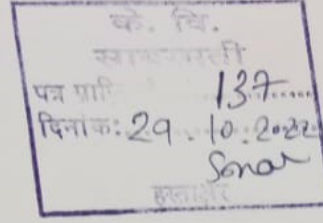 के. वि.
साबरमती
पत्र प्राप्ति 137
दिनांक: 29.10.2022
Sonar
हस्ताक्षर